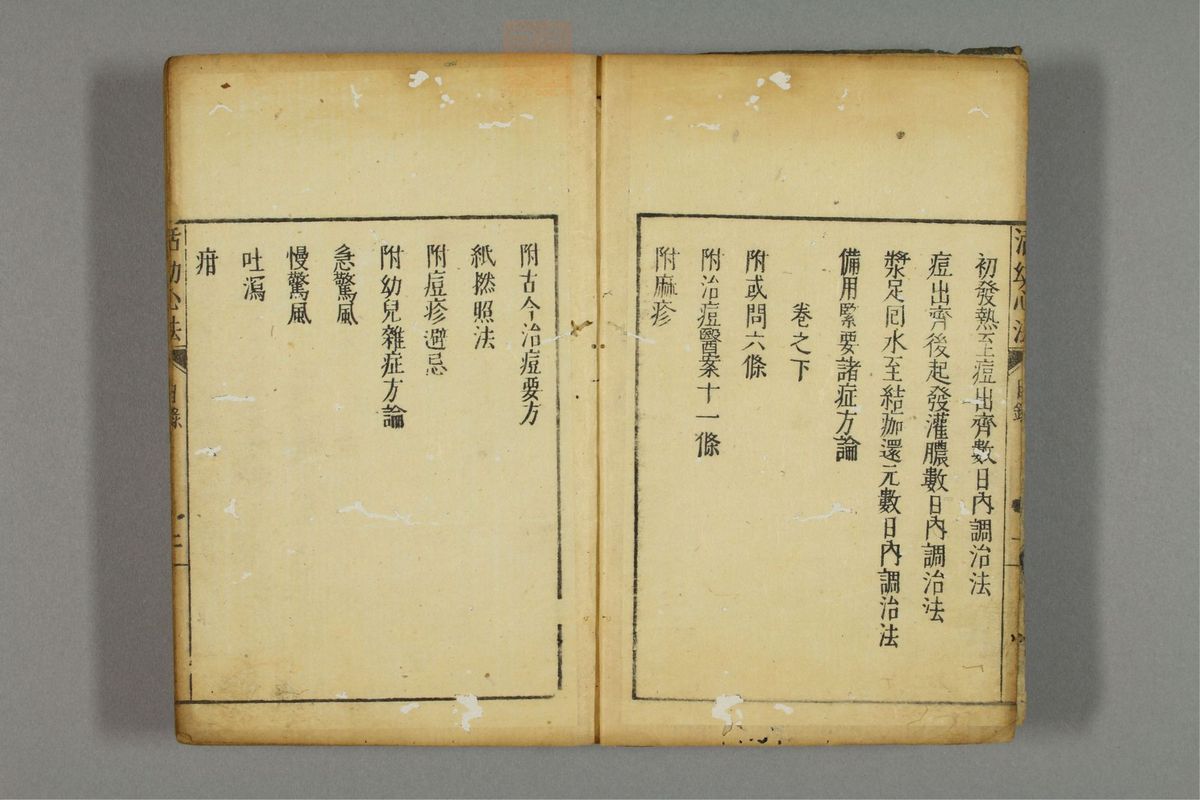 活幼心法
目錄
初發熱至痘出齊數日內調治法
痘出齊後起發灌膿數日內調治法
漿足回水至結痂還元數日內調治法
備用緊要諸症方論
卷之下
附或問六條
附治痘醫案十一條
附麻疹
附古今治痘要方
紙撚照法
附痘疹避忌
附幼兒雜症方論
急驚風
慢驚風
吐瀉
疳
活幼心法
目錄
二